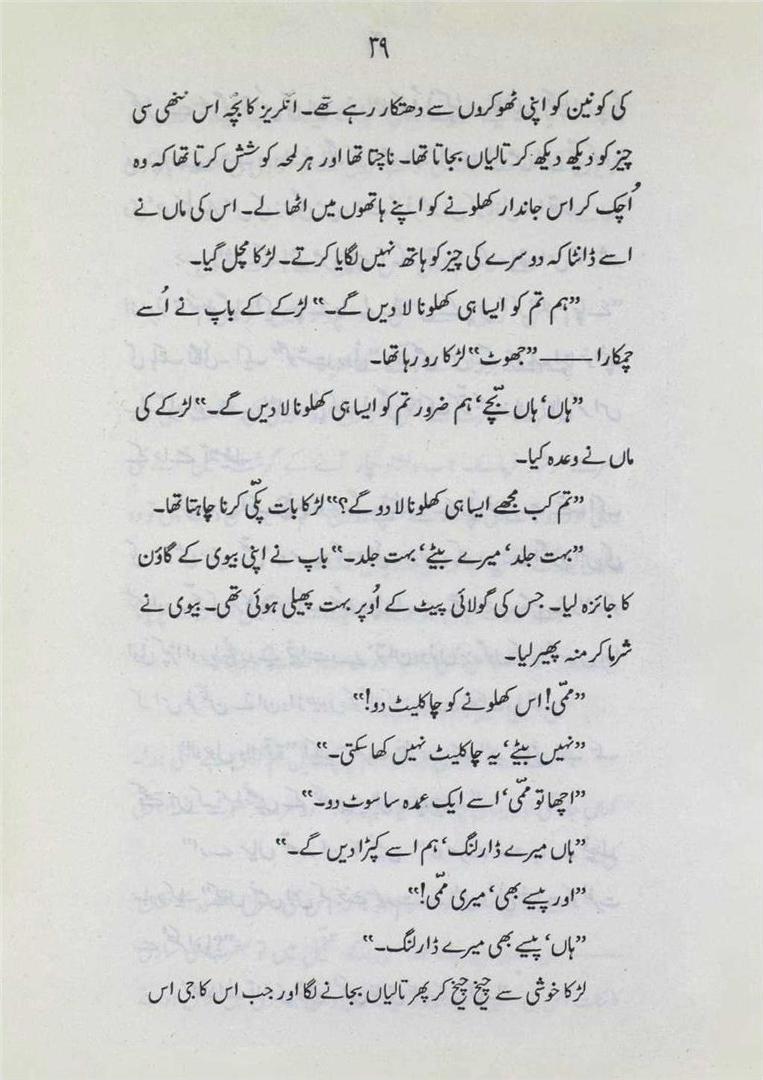 ۳۹
کی کونین کو اپنی ٹھوکروں سے دھتکار رہے تھے۔ انگریز کا بچّہ اس ننھی سی
چیز کو دیکھ دیکھ کر تالیاں بجاتا تھا۔ ناچتا تھا اور ہر لمحہ کوشش کرتا تھا کہ وہ
اُچک کر اس جاندار کھلونے کو اپنے ہاتھوں میں اٹھا لے۔ اس کی ماں نے
اسے ڈانٹا کہ دوسرے کی چیز کو ہاتھ نہیں لگایا کرتے۔ لڑکا مچل گیا۔
”ہم تم کو ایسا ہی کھلونا لا دیں گے۔“ لڑکے کے باپ نے اُسے
چمکارا ——— ”جھوٹ“ لڑکا رو رہا تھا۔
”ہاں‘ ہاں بچّے‘ ہم ضرور تم کو ایسا ہی کھلونا لا دیں گے۔“ لڑکے کی
ماں نے وعدہ کیا۔
”تم کب مجھے ایسا ہی کھلونا لا دو گے؟“ لڑکا بات پکّی کرنا چاہتا تھا۔
”بہت جلد‘ میرے بیٹے‘ بہت جلد۔“ باپ نے اپنی بیوی کے گاؤن
کا جائزہ لیا۔ جس کی گولائی پیٹ کے اُوپر بہت پھیلی ہوئی تھی۔ بیوی نے
شرما کر منہ پھیر لیا۔
”ممّی! اس کھلونے کو چاکلیٹ دو!“
”نہیں بیٹے‘ یہ چاکلیٹ نہیں کھا سکتی۔“
”اچھا تو ممّی‘ اسے ایک عمدہ سا سوٹ دو۔“
”ہاں میرے ڈارلنگ‘ ہم اسے کپڑا دیں گے۔“
”اور پیسے بھی‘ میری ممّی!“
”ہاں‘ پیسے بھی میرے ڈارلنگ۔“
لڑکا خوشی سے چیخ چیخ کر پھر تالیاں بجانے لگا اور جب اس کا جی اس